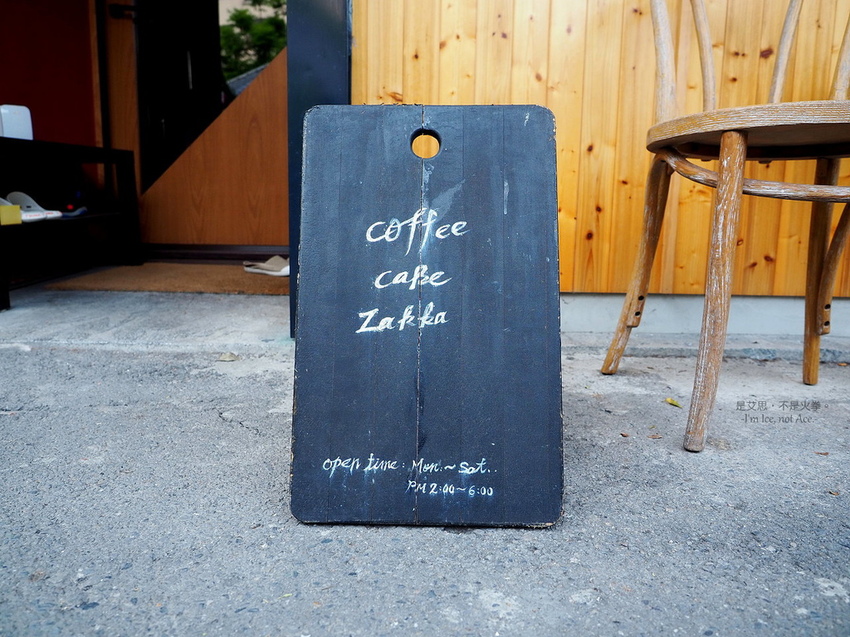 coffee
caße
Zakka
open time: Mon.~Sat.
PM 2:00~6:00
是艾思，不是火拳。
-I'm Ice, not Ace.-